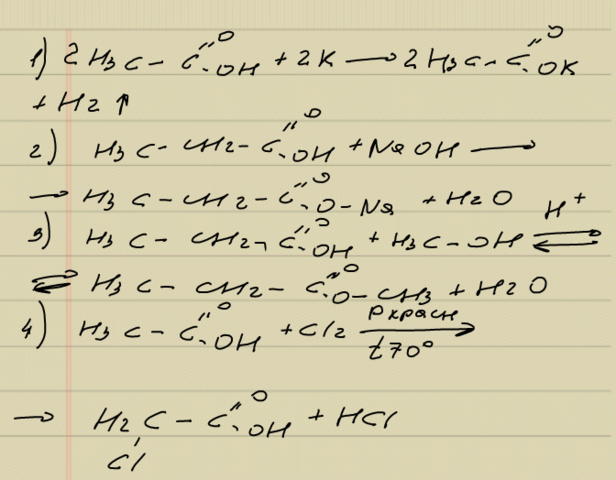 1) 2H3C-C(=O)-OH + 2K → 2H3C-C(=O)-OK
+ H2 ↑
2) H3C-CH2-C(=O)-OH + NaOH →
→ H3C-CH2-C(=O)-O-Na + H2O
3) H3C-CH2-C(=O)-OH + H3C-OH ⇄ H+
⇄ H3C-CH2-C(=O)-O-CH3 + H2O
4) H3C-C(=O)-OH + Cl2 → Pкрасн t70°
→ H2C-C(=O)-OH + HCl
Cl